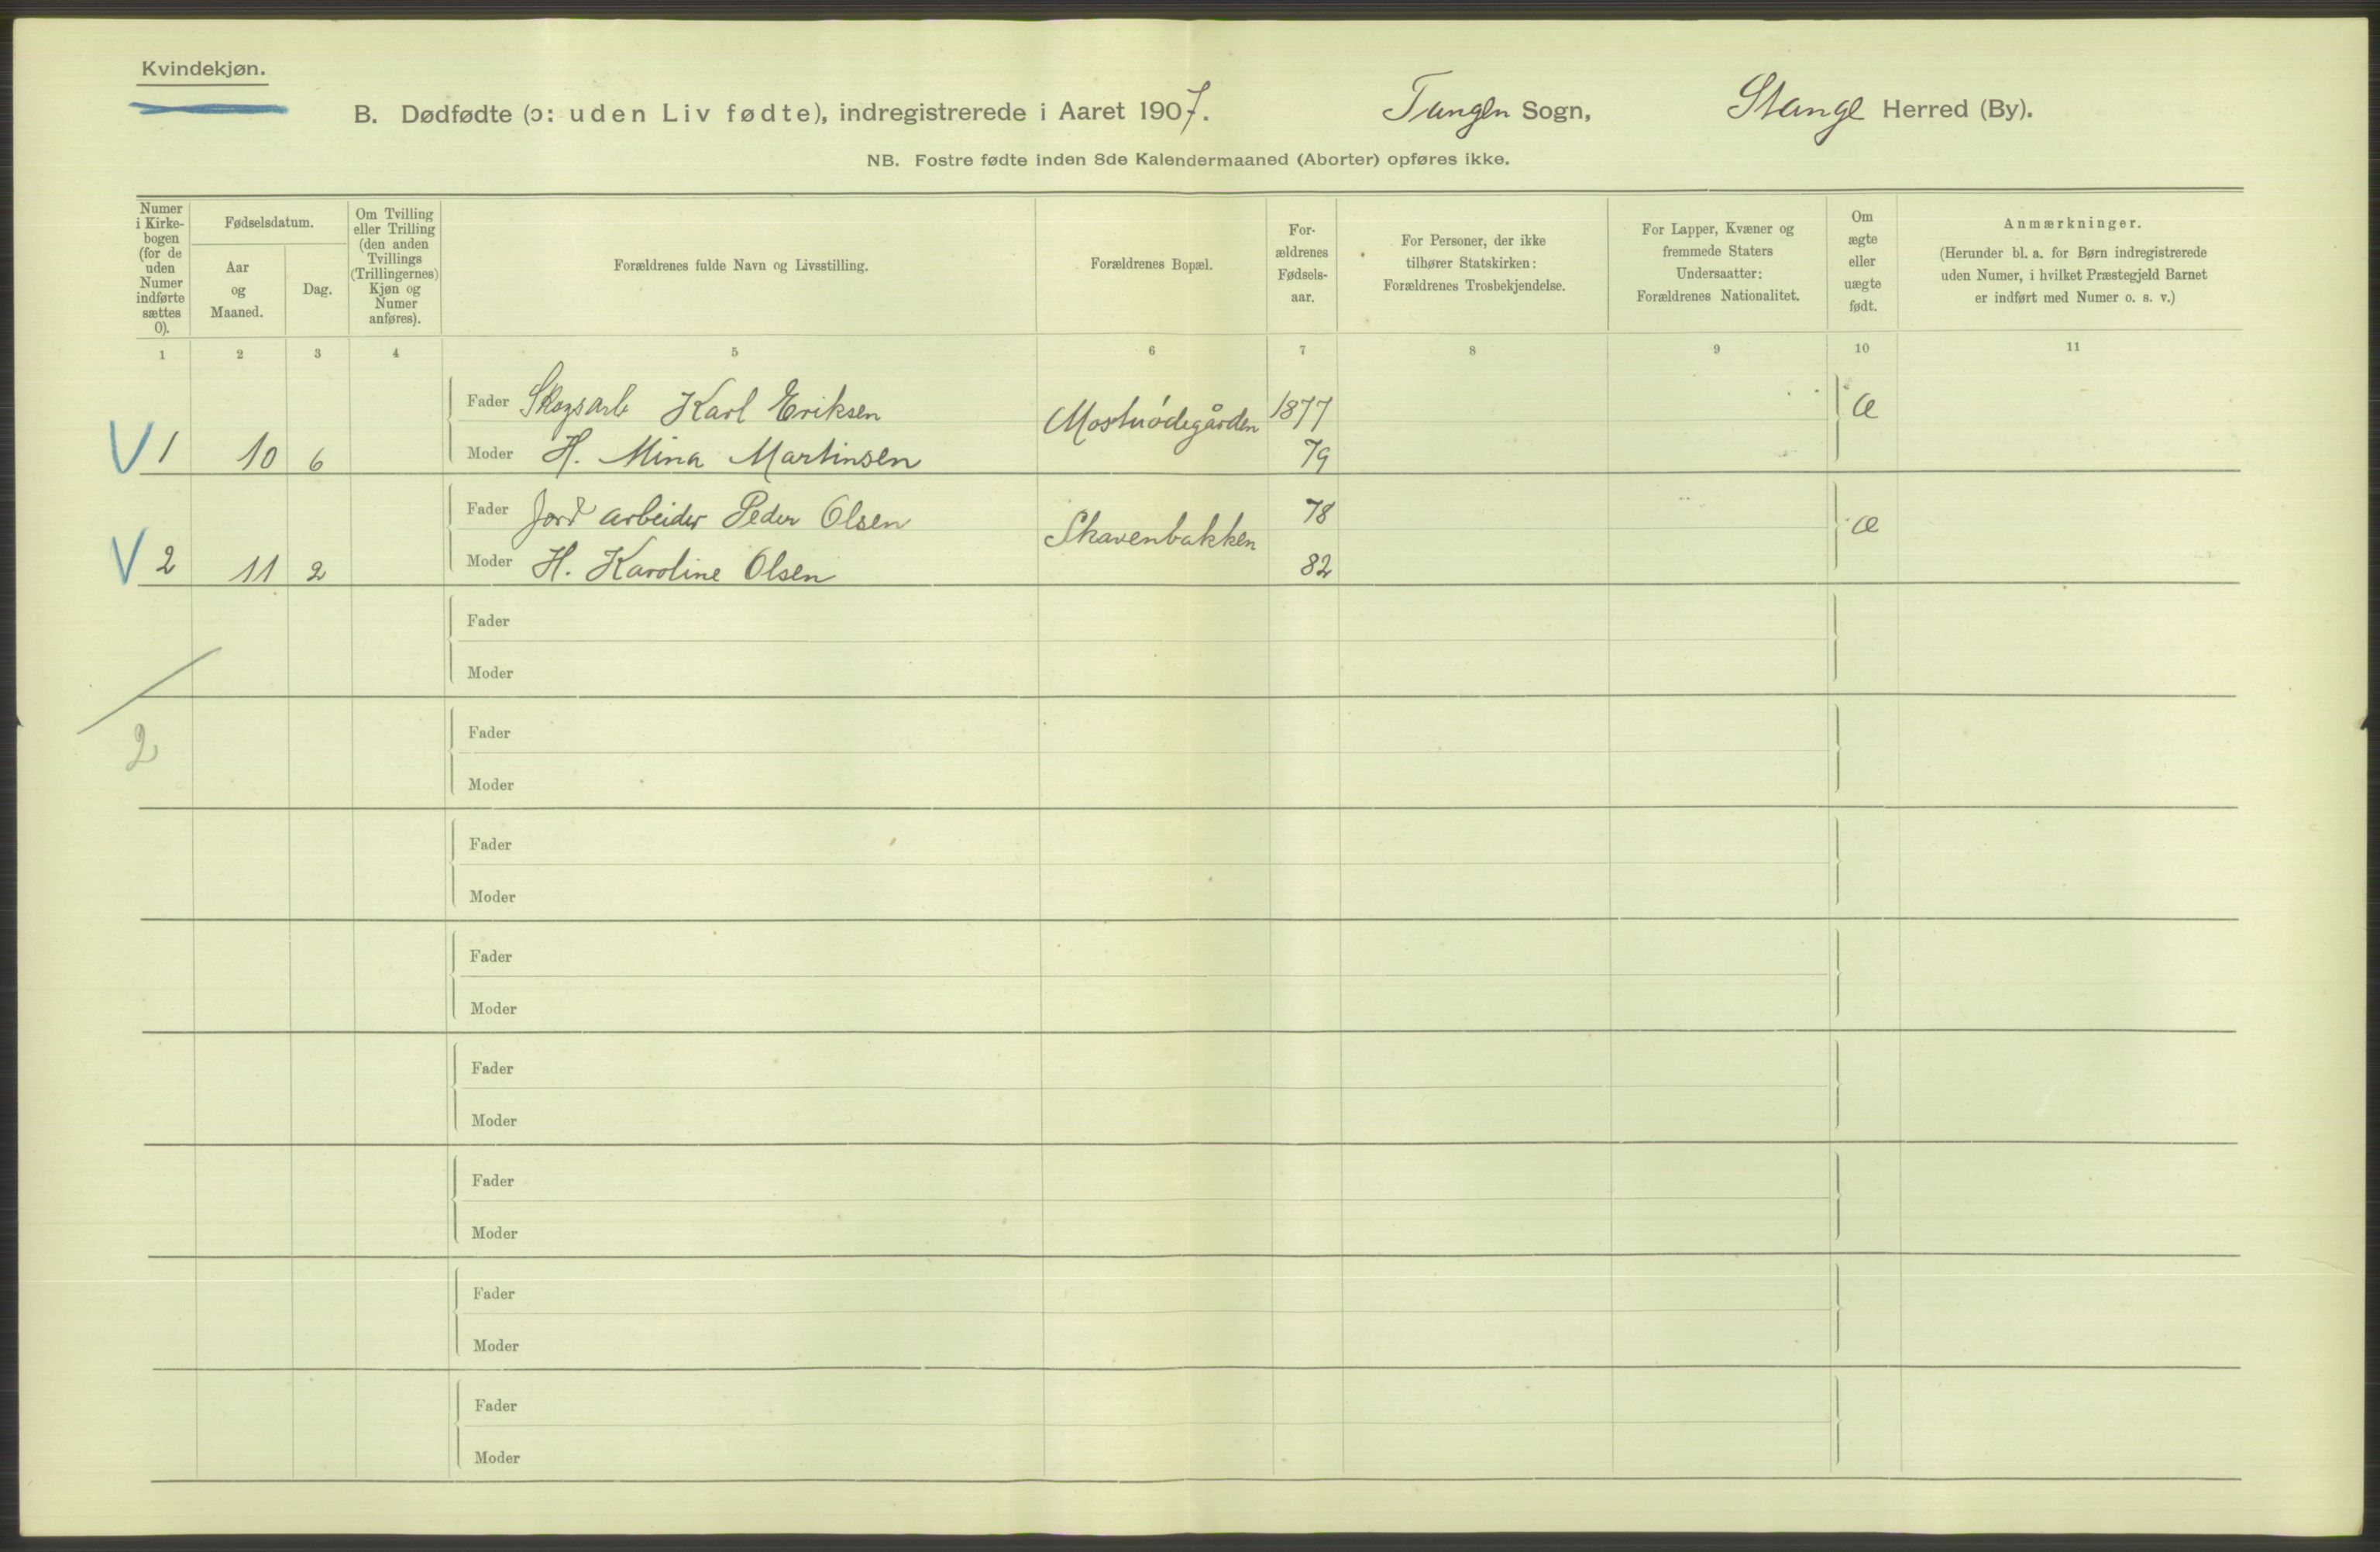 Kvindekjøn.
B. Dødfødte (ɔ: uden Liv fødte), indregistrerede i Aaret 1907. Tangen Sogn, Stange Herred (By).
NB. Fostre fødte inden 8de Kalendermaaned (Aborter) opføres ikke.
Numer
i Kirke-
bogen
(for de
uden
Numer
indførte
sættes
0).
Fødselsdatum.
Aar
og
Maaned.
Dag.
Om Tvilling
eller Trilling
(den anden
Tvillings
(Trillingernes)
Kjøn og
Numer
anføres).
Forældrenes fulde Navn og Livsstilling.
Forældrenes Bopæl.
For-
ældrenes
Fødsels-
aar.
For Personer, der ikke
tilhører Statskirken:
Forældrenes Trosbekjendelse.
For Lapper, Kvæner og
fremmede Staters
Undersaatter:
Forældrenes Nationalitet.
Om
ægte
eller
uægte
født.
Anmærkninger.
(Herunder bl. a. for Børn indregistrerede
uden Numer, i hvilket Præstegjeld Barnet
er indført med Numer o. s. v.)
1 2 3 4 5 6 7 8 9 10 11
Fader Skogsarb Karl Eriksen 1877 Æ
V 1 10 6 Moder H. Mina Martinsen 79
Fader Jord arbeider Peder Olsen Skavenbakken 78 Æ
V 2 11 2 Moder H. Karoline Olsen 82
Fader
Moder
2
Fader
Moder
Fader
Moder
Fader
Moder
Fader
Moder
Fader
Moder
Fader
Moder
Fader
Moder